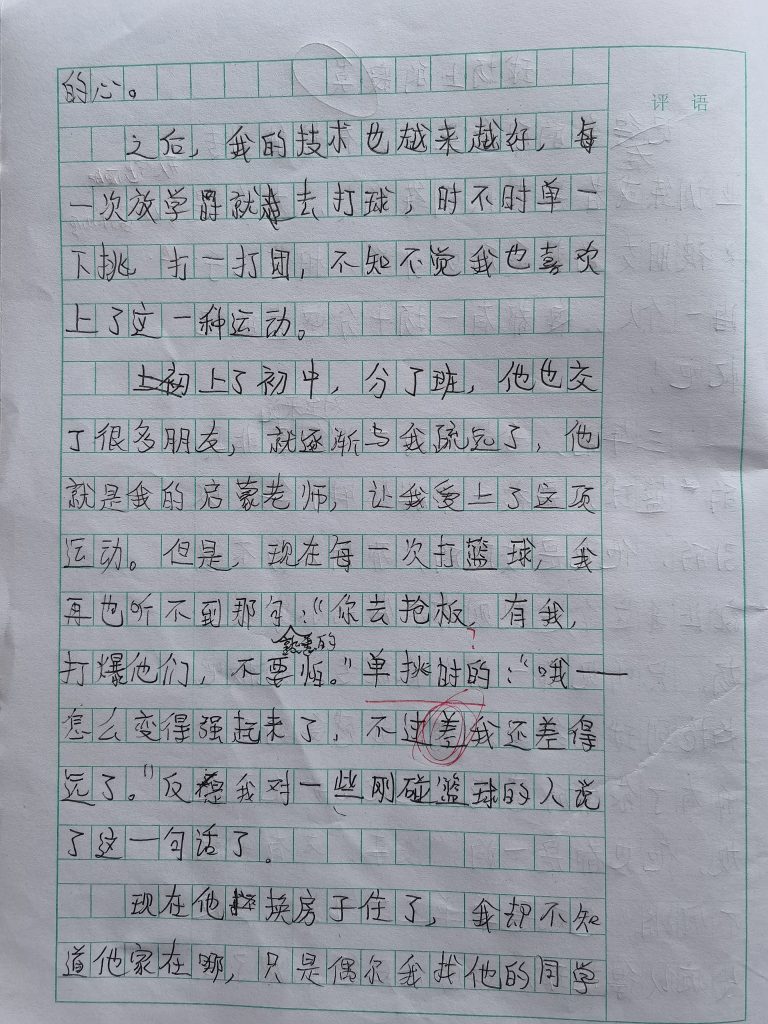 评 语
的心。
之后，我的技术也越来越好，每
一次放学就去打球，时不时单一
下挑 打一打团，不知不觉我也喜欢
上了这一种运动。
上初上了初中，分了班，他也交
了很多朋友，就逐渐与我疏远了，他
就是我的启蒙老师，让我爱上了这项
运动。但是，现在每一次打篮球，我
再也听不到那句：“你去抢板，有我，
熟悉的
打爆他们，不要怕。”单挑时的：“哦——
?
怎么变得强起来了，不过差我还差得
远了。”反我对一些刚碰篮球的人说
了这一句话了。
现在他换房子住了，我却不知
道他家在哪，只是偶尔我找他的同学